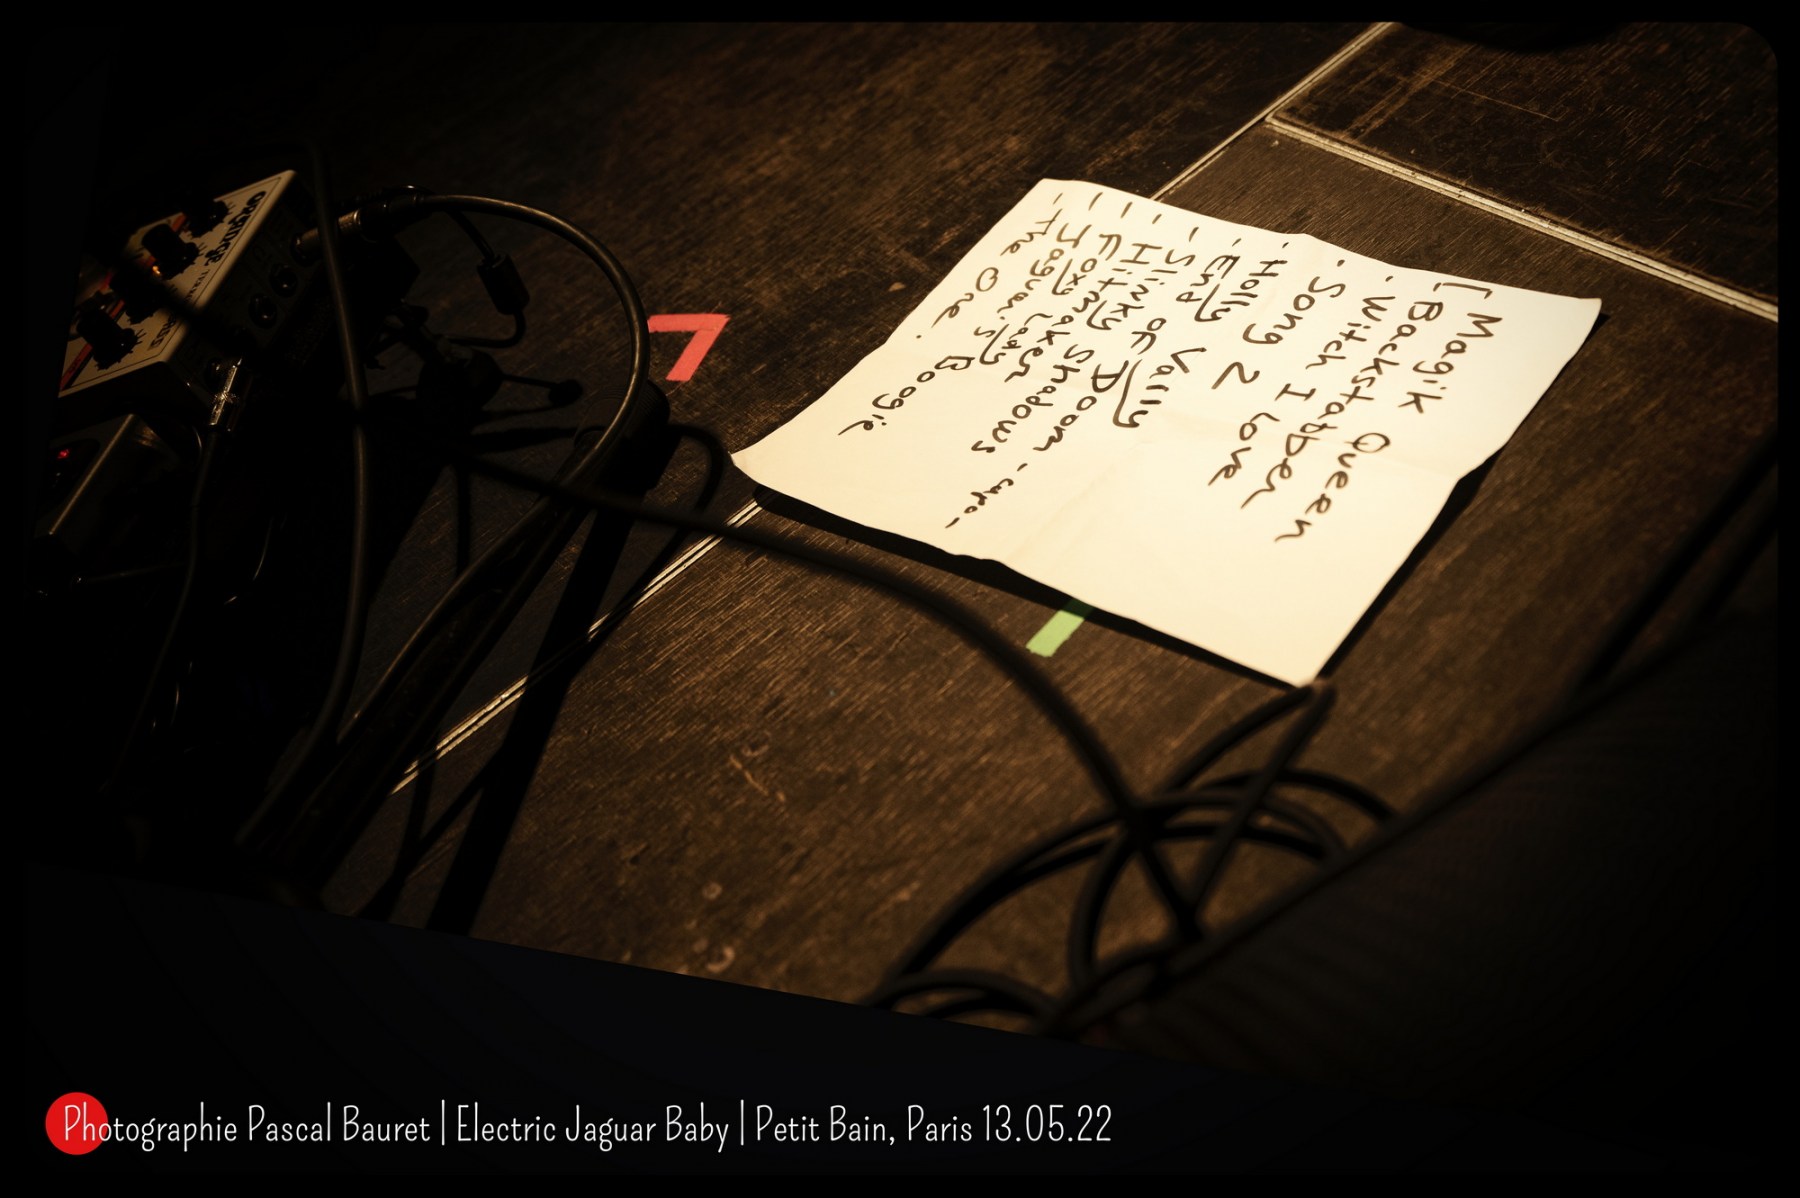 [Magik Queen
· Backstabber
· Witch I Love
· Song 2
· Holly Vally
- End of Doom - capo -
- Slinky Shadows
- Hitmaker
- Foxy Lady
- Jaguar's Boogie
- The One.
Orange
Photographie Pascal Bauret | Electric Jaguar Baby | Petit Bain, Paris 13.05.22